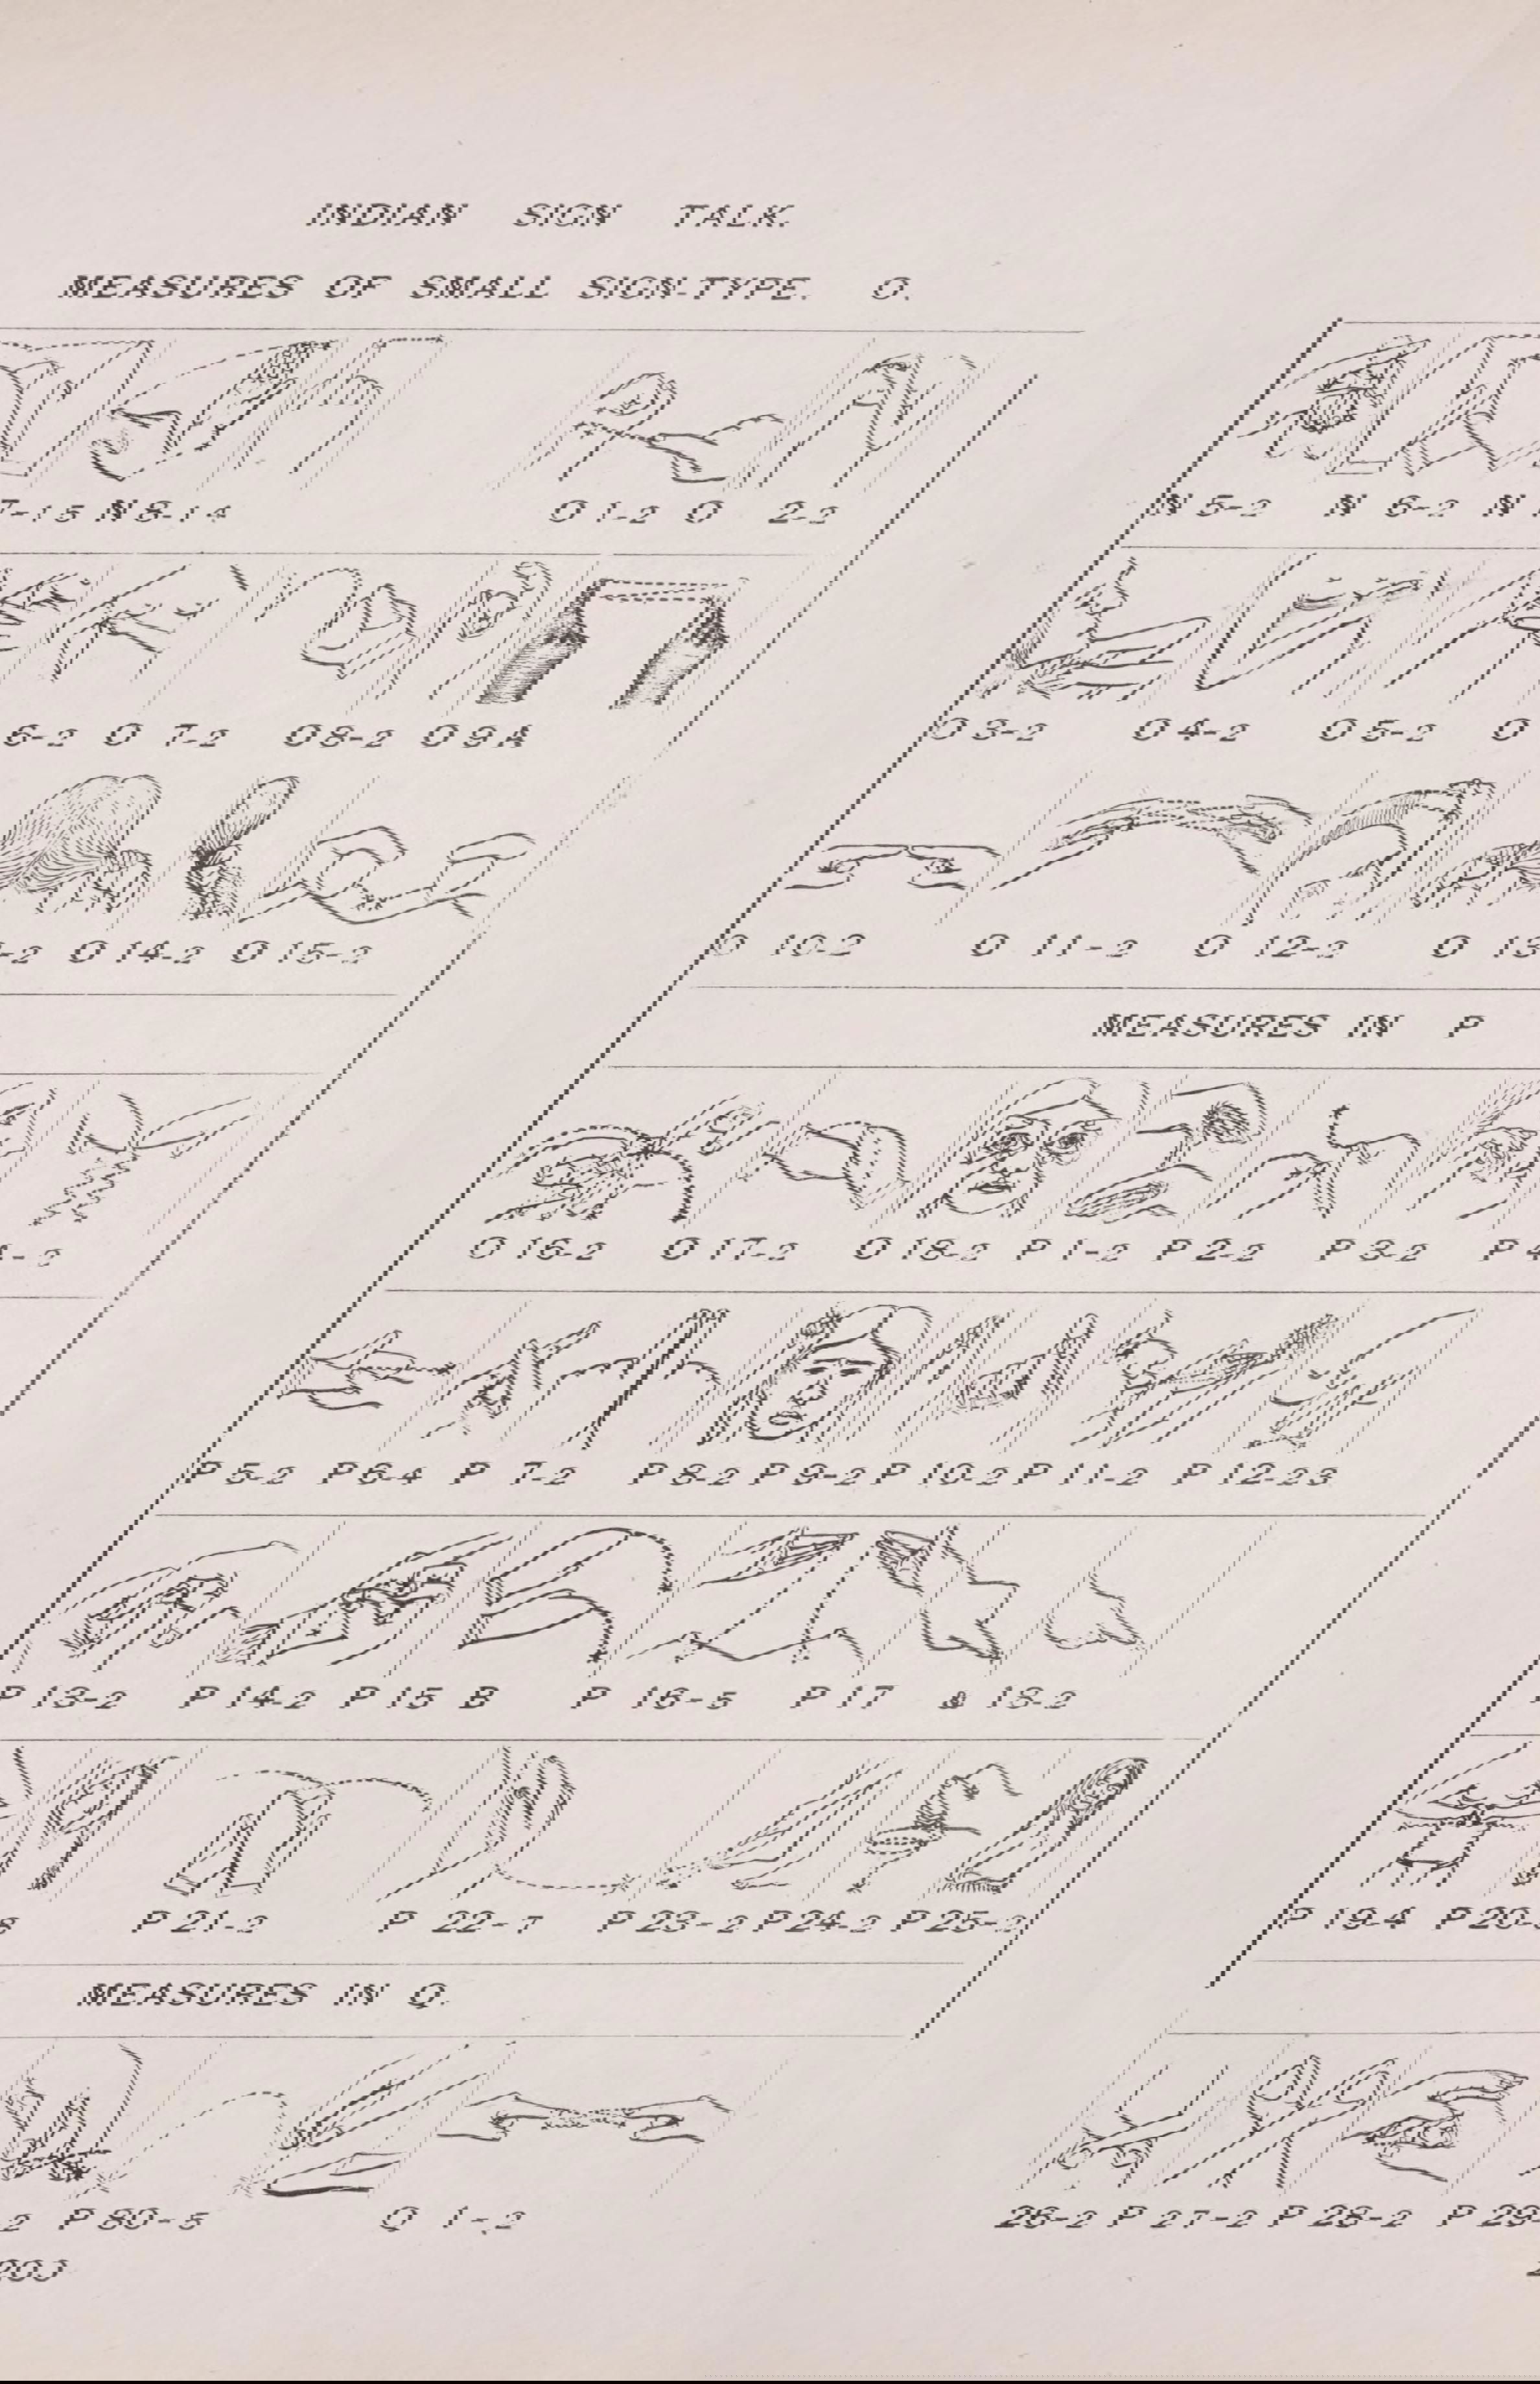 INDIAN SIGN TALK.
MEASURES OF SMALL SIGN-TYPE. O.
7-15 N 8-14 O 1-2 O 2-2 N 5-2 N 6-2 N
6-2 O 7-2 O 8-2 O 9 A O 3-2 O 4-2 O 5-2 O
-2 O 14-2 O 15-2 O 10-2 O 11-2 O 12-2 O 13
MEASURES IN P
-2 O 16-2 O 17-2 O 18-2 P 1-2 P 2-2 P 3-2 P 4
P 5-2 P 6-4 P 7-2 P 8-2 P 9-2 P 10-2 P 11-2 P 12-23
P 13-2 P 14-2 P 15 B P 16-5 P 17 & 18-2
P 21-2 P 22-7 P 23-2 P 24-2 P 25-2 P 19-4 P 20-
MEASURES IN Q.
2 P 30-5 Q 1-2 26-2 P 27-2 P 28-2 P 29-